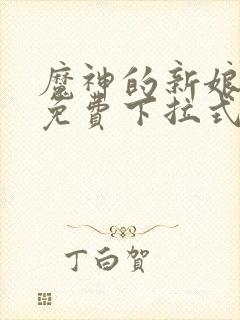 魔神的新娘
免费下拉式
丁白贺